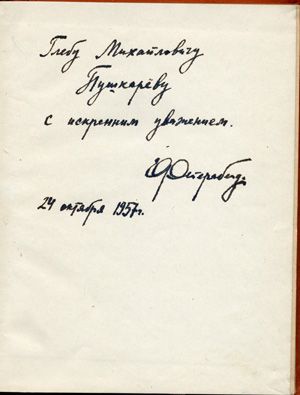 Глебу Михайловичу
Пушкарёву
с искренним уважением.
24 октября 1957г.